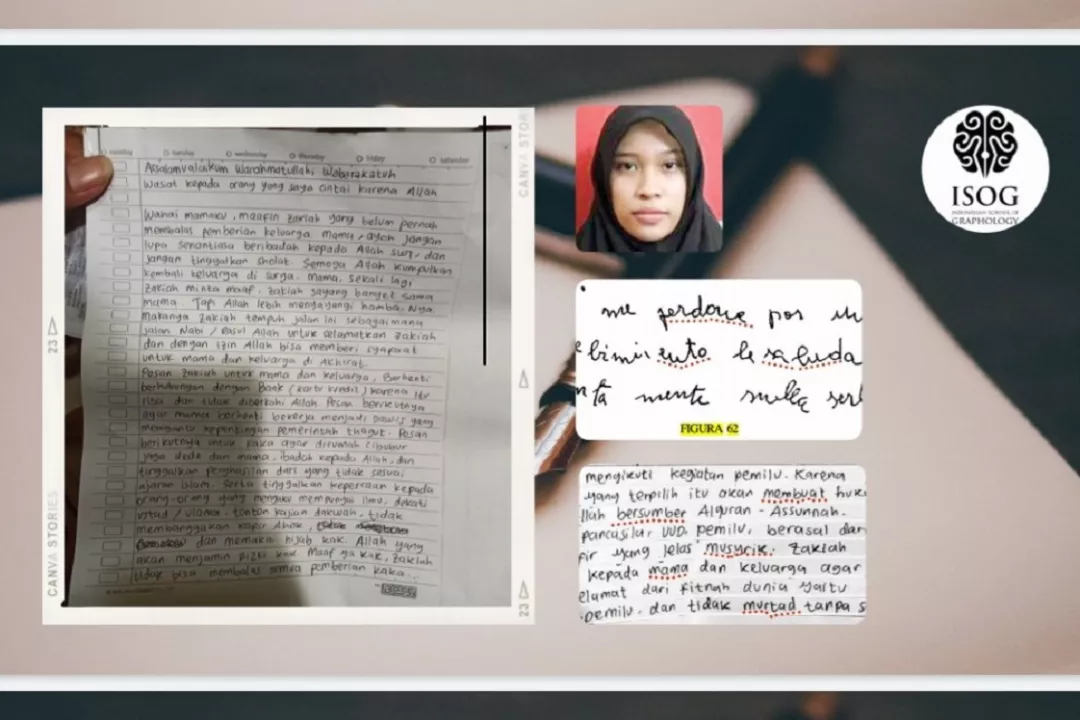 Assalamualaikum Warahmatullahi Wabarakatuh
Wasiat kepada orang yang saya cintai karena Allah
Wahai mamaku, maafin zakiah yang belum pernah
membalas pemberian keluarga. Mama, ayah jangan
lupa senantiasa beribadah kepada Allah swt, dan
jangan tinggalkan sholat. Semoga Allah kumpulkan
kembali keluarga di surga. Mama, sekali lagi
zakiah minta maaf. zakiah sayang banget sama
mama. Tapi Allah lebih menyayangi hamba-Nya
makanya zakiah tempuh jalan ini sebagaimana
jalan Nabi / Rasul Allah untuk selamatkan zakiah
dan dengan izin Allah bisa memberi syapaat
untuk mama dan keluarga di Akhirat
Pesan zakiah untuk mama dan keluarga, Berhenti
berhubungan dengan Bank (kartu kredit) karena itu
riba dan tidak diberkahi Allah. Pesan berikutnya
agar mama berhenti bekerja menjadi yang
membantu kepentingan pemerintah thagut. Pesan
berikutnya untuk kaka agar dirumah cibubur
jaga dede dan mama, ibadah kepada Allah, dan
tinggalkan penghasilan dari yang tidak sesuai
ajaran Islam. serta tinggalkan kepercaan kepada
orang-orang yang mengaku mempunyai ilmu, dekati
ustad / ulama. tonton kajian dakwah, tidak
membanggakan kapir Ahok,
dan memakai hijab kak. Allah yang
akan menjamin rizki kak Maaf ya kak, zakiah
tidak bisa membalas semua pemberian kaka...
CANVA STORIES
23
CANVA STOR
23
me perdone por
FIGURA 62
mengikuti kegiatan pemilu. Karena
yang terpilih itu akan membuat huk
llah bersumber Alquran - Assunnah.
pancasila, UUD, pemilu, berasal dari
fir yang jelas musycik. Zakiah
kepada mama dan keluarga agar
elamat dari fitnah dunia yaitu
pemilu. dan tidak murtad tanpa s
ISOG
INDONESIAN SCHOOL OF
GRAPHOLOGY